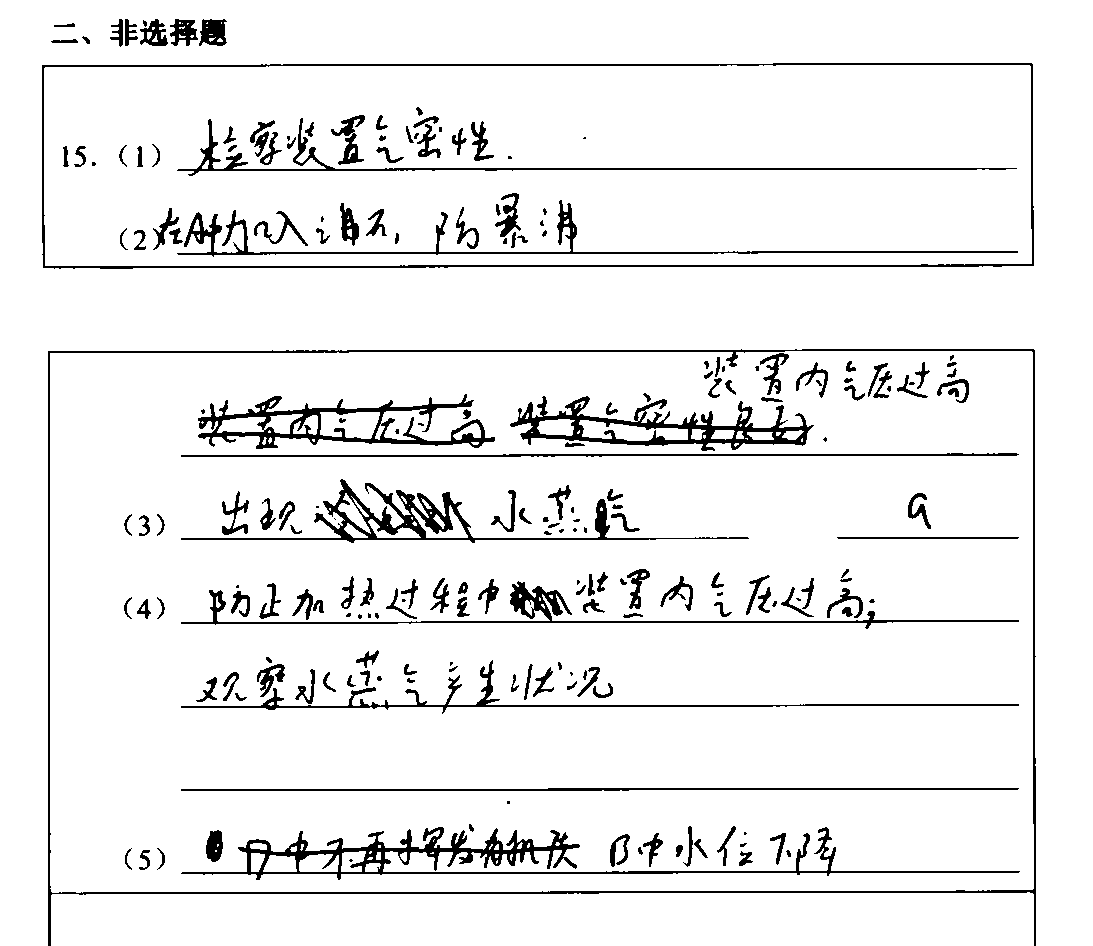 二、非选择题
15.(1) 检察装置气密性.
(2) 在A中加入沸石, 防暴沸
装置内气压过高
装置内气压过高 装置气密性良好.
(3) 出现 水蒸气 a
(4) 防止加热过程中装置内气压过高;
观察水蒸气产生状况
(5) B中水位下降